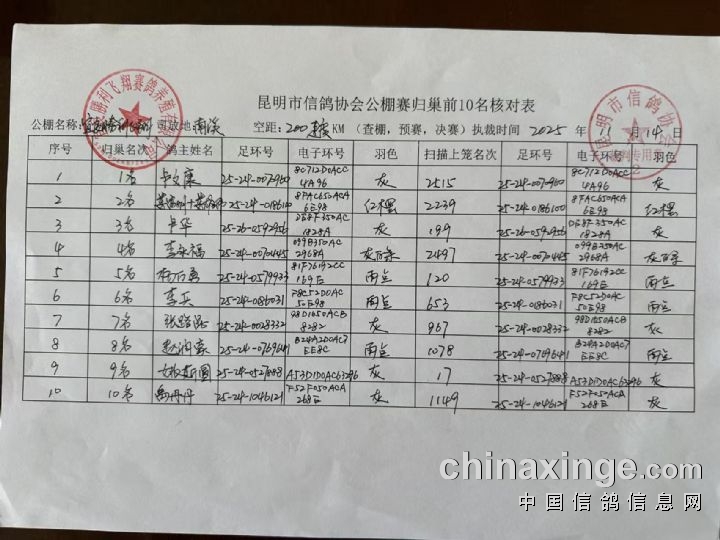 昆明市信鸽协会公棚赛归巢前10名核对表
公棚名称: 司放地: 南溪 空距: 200 KM (查棚,预赛,决赛) 执裁时间 2025 年 11 月 14 日
序号 归巢名次 鸽主姓名 足环号 电子环号 羽色 扫描上笼名次 足环号 电子环号 羽色
1 1名 25-24-0072960 8C712D0ACC4A96 灰 2515 25-24-0072960 8C712D0ACC4A96 灰
2 2名 25-24-0186100 8FAC650ACA6E98 红楞 2239 25-24-0186100 8FAC650ACA6E98 红楞
3 3名 卢华 25-26-0592956 DE8F350AC1828A 灰 199 25-26-0592956 DE8F350AC1828A 灰
4 4名 李永福 25-24-0070445 099B350AC2968A 灰白条 2497 25-24-0070445 099B350AC2968A 灰白条
5 5名 25-24-0579933 81F76192CC169E 雨点 120 25-24-0579933 81F76192CC169E 雨点
6 6名 李兵 25-24-0186031 F8C52D0AC50E98 雨点 653 25-24-0186031 F8C52D0AC50E98 雨点
7 7名 25-24-0028332 98D1650ACB8282 灰 967 25-24-0028332 98D1650ACB8282 灰
8 8名 赵润豪 25-24-0769641 B24A2D0AC7EE8C 雨点 1078 25-24-0769641 B24A2D0AC7EE8C 雨点
9 9名 25-24-0527888 A53D1D0AC63296 灰 17 25-24-0527888 A53D1D0AC63296 灰
10 10名 禹丹丹 25-24-1046121 F52F050ACA268E 灰 1149 25-24-1046121 F52F050ACA268E 灰
chinaxinge.com
中国信鸽信息网